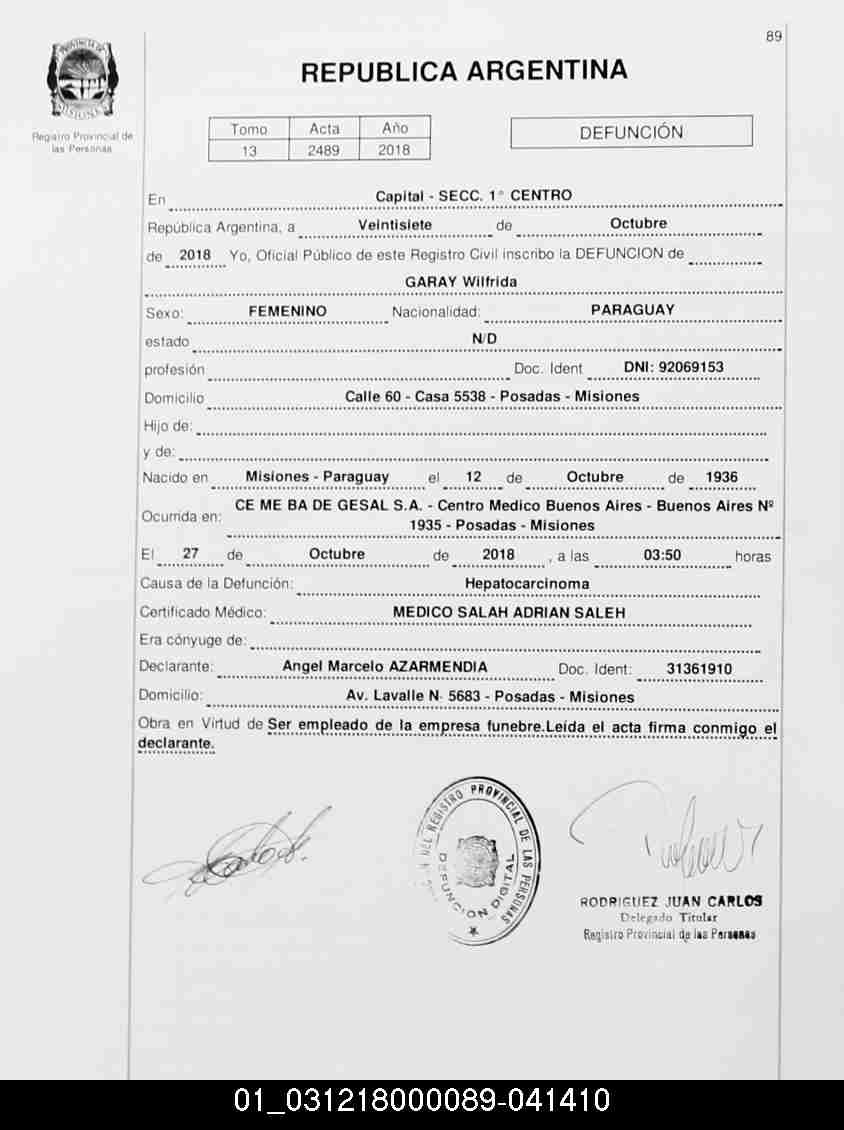 89
PROVINCIA DE
MISIONES
REPUBLICA ARGENTINA
Registro Provincial de
las Personas
Tomo Acta Año
13 2489 2018
DEFUNCIÓN
En Capital - SECC. 1° CENTRO
República Argentina, a Veintisiete de Octubre
de 2018 Yo, Oficial Público de este Registro Civil inscribo la DEFUNCION de
GARAY Wilfrida
Sexo: FEMENINO Nacionalidad: PARAGUAY
estado N/D
profesión Doc. Ident DNI: 92069153
Domicilio Calle 60 - Casa 5538 - Posadas - Misiones
Hijo de:
y de:
Nacido en Misiones - Paraguay el 12 de Octubre de 1936
CE ME BA DE GESAL S.A. - Centro Medico Buenos Aires - Buenos Aires Nº
Ocurrida en: 1935 - Posadas - Misiones
El 27 de Octubre de 2018, a las 03:50 horas
Causa de la Defunción: Hepatocarcinoma
Certificado Médico: MEDICO SALAH ADRIAN SALEH
Era cónyuge de:
Declarante: Angel Marcelo AZARMENDIA Doc. Ident: 31361910
Domicilio: Av. Lavalle N· 5683 - Posadas - Misiones
Obra en Virtud de Ser empleado de la empresa funebre.Leída el acta firma conmigo el
declarante.
DEL REGISTRO PROVINCIAL DE LAS PERSONAS
DEFUNCION DIGITAL
RODRIGUEZ JUAN CARLOS
Delegado Titular
Registro Provincial de las Personas
01_031218000089-041410